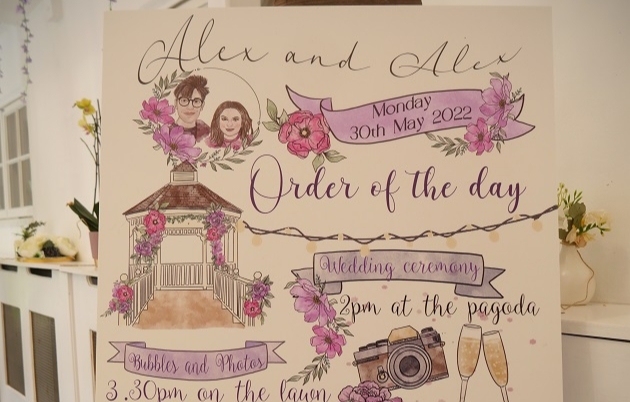 Alex and Alex
Monday
30th May 2022
Order of the day
Wedding ceremony
2pm at the pagoda
Bubbles and Photos
3.30pm on the lawn